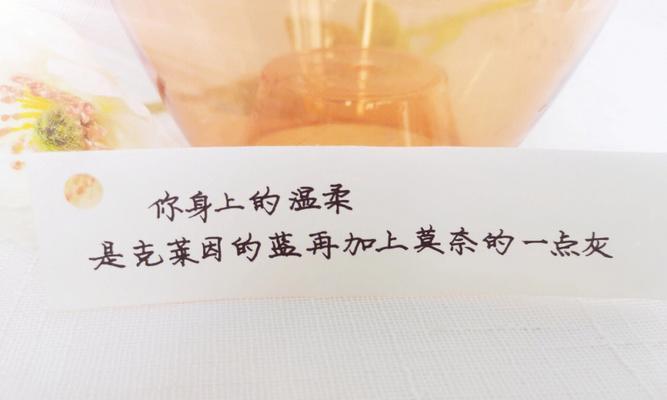 你身上的温柔
是克莱因的蓝再加上莫奈的一点灰